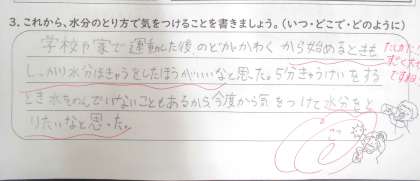 3. これから、水分のとり方で気をつけることを書きましょう。(いつ・どこで・どのように)
学校や家で運動した後のどがかわくから始めるときも
しっかり水分ほきゅうをしたほうがいいなと思った。5分きゅうけいをする
とき水をのんでいないこともあるから今度から気をつけて水分をと
りたいなと思った。